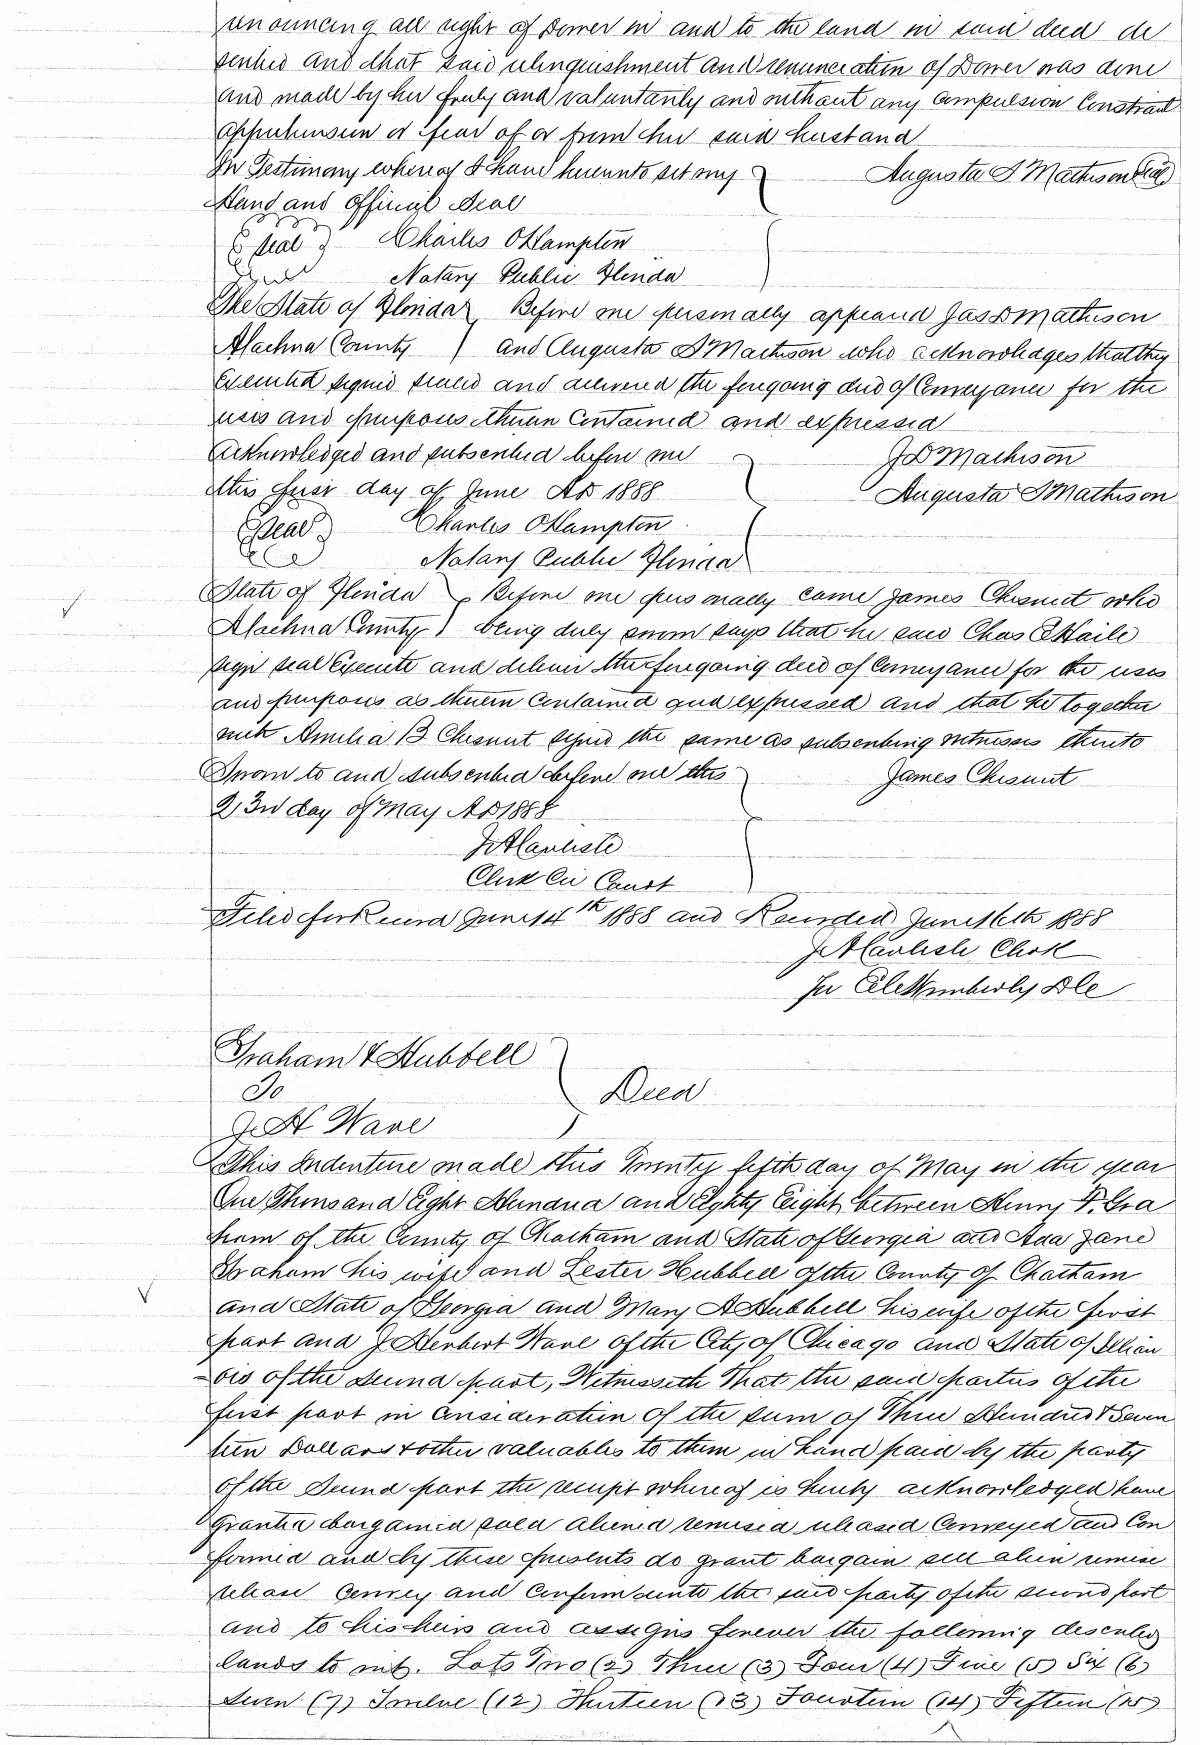 renouncing all right of Dower in and to the land in said deed de
scribed and that said relinquishment and renunciation of Dower was done
and made by her freely and voluntarily and without any Compulsion Constraint
apprehension or fear of or from her said husband
In Testimony whereof I have hereunto set my Augusta S Mathison (Seal)
Hand and official Seal
(Seal) Charles O Hampton
Notary Public Florida
The State of Florida Before me personally appeared Jas D Mathison
Alachua County and Augusta S Mathison who acknowledges that they
Executed signed sealed and delivered the foregoing deed of Conveyance for the
uses and purposes therein Contained and expressed
Acknowledged and subscribed before me J D Mathison
this first day of June AD 1888 Augusta S Mathison
(Seal) Charles O Hampton
Notary Public Florida
State of Florida Before me personally came James Chesnut who
Alachua County being duly sworn says that he said Chas E Haile
sign seal Execute and deliver the foregoing deed of Conveyance for the uses
and purposes as therein Contained and expressed and that he together
with Amelia B Chesnut signed the same as subscribing witnesses thereto
Sworn to and subscribed before me this James Chesnut
23rd day of May AD 1888
J A Carlisle
Clerk Cir Court
Filed for Record June 14th 1888 and Recorded June 16th 1888
J A Carlisle Clerk
Wimberly D C
Graham & Hubbell
To Deed
J. H Wave
This Indenture made this Twenty fifth day of May in the year
One Thousand Eight Hundred and Eighty Eight between Henry F. Gra
ham of the County of Chatham and State of Georgia and Ada Jane
Graham his wife and Lester Hubbell of the County of Chatham
and State of Georgia and Mary A Hubbell his wife of the first
part and J Herbert Wave of the City of Chicago and State of Illian
ois of the Second part, Witnesseth That the said parties of the
first part in Consideration of the sum of Three Hundred & Seven
teen Dollars & other valuables to them in hand paid by the party
of the Second part the receipt whereof is hereby acknowledged have
Granted bargained sold aliened remised released Conveyed and Con
firmed and by these presents do grant bargain sell alien remise
release Convey and Confirm unto the said party of the second part
and to his heirs and assigns forever the following described
lands to wit. Lots Two (2) Three (3) Four (4) Five (5) Six (6)
Seven (7) Twelve (12) Thirteen (13) Fourteen (14) Fifteen (15)